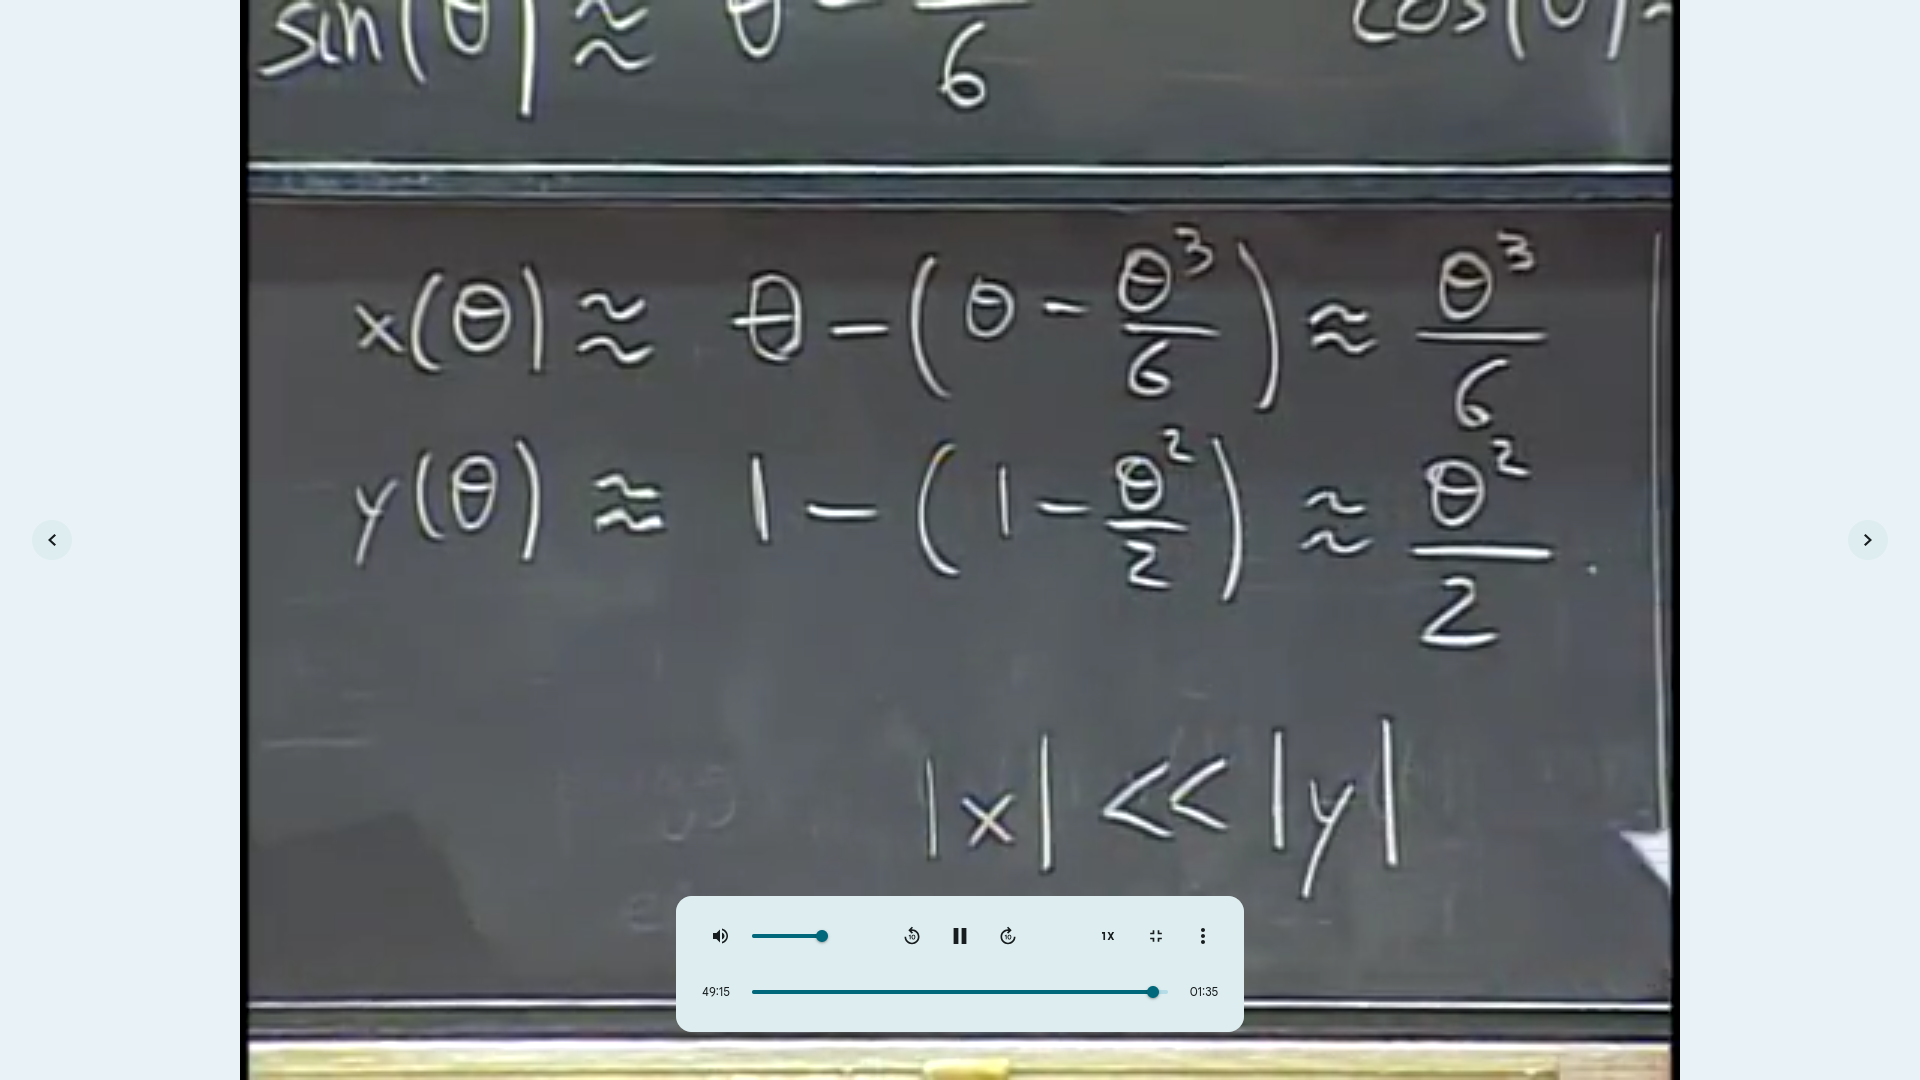 sin(θ) ≈ θ - — / 6 cos(θ) ≈
x(θ) ≈ θ - (θ - θ³/6) ≈ θ³/6
y(θ) ≈ 1 - (1 - θ²/2) ≈ θ²/2
|x| << |y|
10 10 1X
49:15 01:35